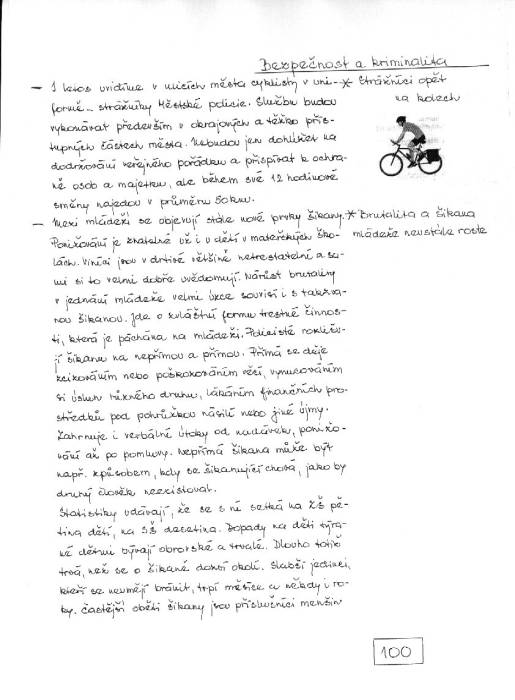 Bezpečnost a kriminalita
– I letos uvidíme v ulicích města cyklisty v uni-
formě – strážníky Městské policie. Službu budou
vykonávat především v okrajových a těžko přís-
tupných částech města. Nebudou jen dohlížet na
dodržování veřejného pořádku a přispívat k ochra-
ně osob a majetku, ale během své 12 hodinové
směny najedou v průměru 50 km.
* Strážníci opět
na kolech
– Mezi mládeží se objevují stále nové prvky šikany.
Ponižování je znatelné už i u dětí v mateřských ško-
lách. Viníci jsou v drtivé většině netrestatelní a sa-
mi si to velmi dobře uvědomují. Nárůst brutality
v jednání mládeže velmi úzce souvisí i s takzva-
nou šikanou. Jde o zvláštní formu trestné činnos-
ti, která je páchána na mládeži. Policisté rozlišu-
jí šikanu na nepřímou a přímou. Přímá se děje
zcizováním nebo poškozováním věcí, vynucováním
si úsluh různého druhu, lákáním finančních pro-
středků pod pohrůžkou násilí nebo jiné újmy.
Zahrnuje i verbální útoky od nadávek, ponižo-
vání až po pomluvy. Nepřímá šikana může být
např. způsobem, kdy se šikanující chová, jako by
druhý člověk neexistoval.
Statistiky udávají, že se s ní setká na ZŠ pě-
tina dětí, na SŠ desetina. Dopady na děti týra-
né dětmi bývají obrovské a trvalé. Dlouho totiž
trvá, než se o šikaně dozví okolí. Slabší jedinci,
kteří se neumějí bránit, trpí měsíce a někdy i ro-
ky. Častější obětí šikany jsou příslušníci menšin
* Brutalita a šikana
mládeže neustále roste
100